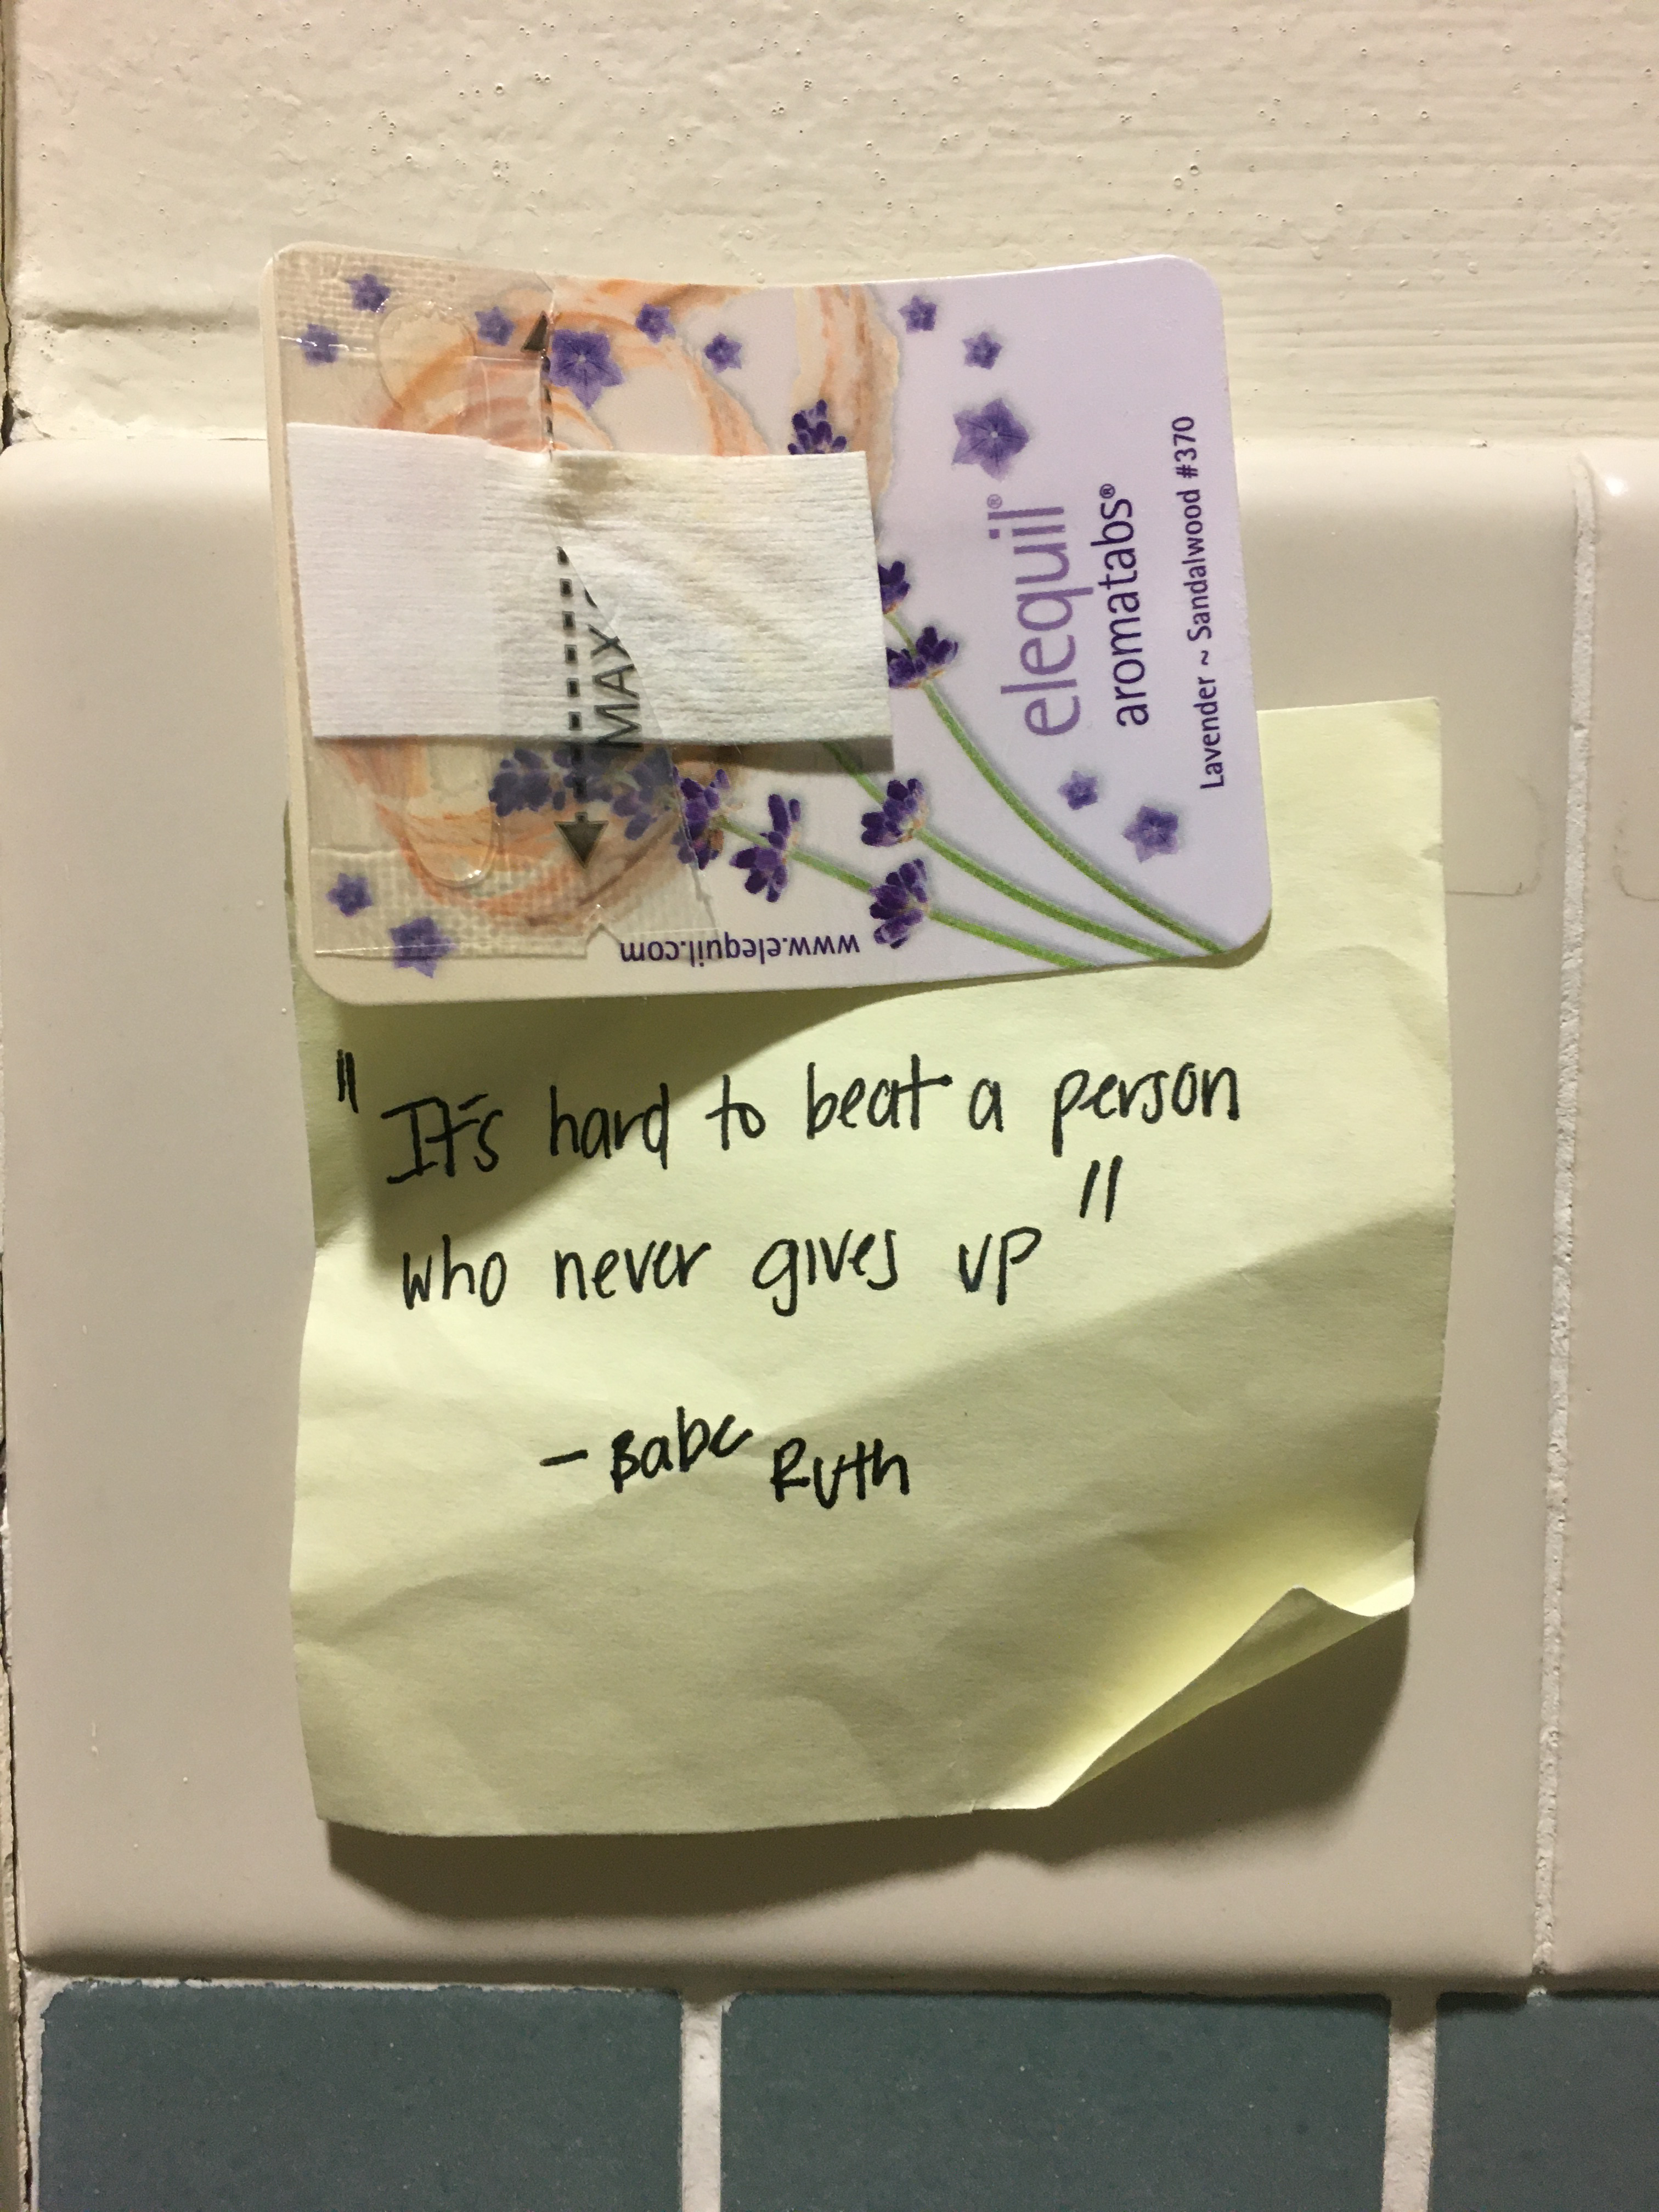 MAX
elequil®
aromatabs®
Lavender ~ Sandalwood #370
www.elequil.com
"It's hard to beat a person
who never gives up"
- Babe Ruth